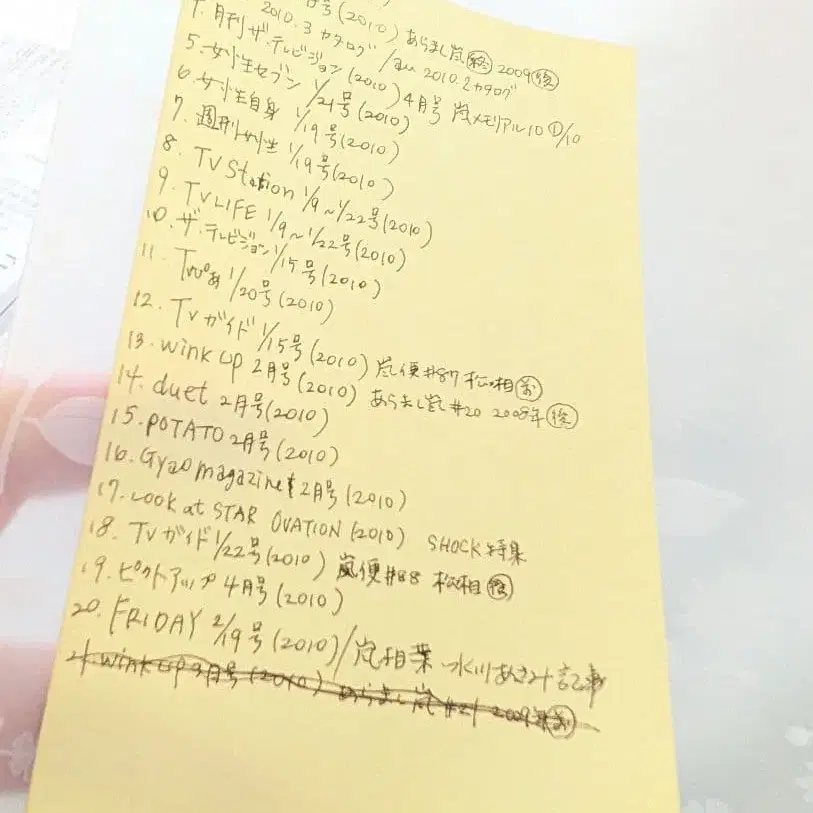 号(2010) あらまし嵐㊗ 2009㊝
2010.3 カタログ/au 2010.2カタログ
4. 月刊ザ・テレビジョン(2010) 4月号 嵐メモリアル10①/10
5. 女性セブン 1/21号(2010)
6. 女性自身 1/19号(2010)
7. 週刊女性 1/19号(2010)
8. TV Station 1/9~1/22号(2010)
9. TV LIFE 1/9~1/22号(2010)
10. ザ・テレビジョン 1/15号(2010)
11. TVぴあ 1/20号(2010)
12. TVガイド 1/15号(2010)
13. wink up 2月号(2010) 嵐便#87 松相前
14. duet 2月号(2010) あらまし嵐#20 2008年後
15. POTATO 2月号(2010)
16. Gyao magazine 2月号(2010)
17. Look at STAR OVATION (2010) SHOCK特集
18. TVガイド 1/22号(2010) 嵐便#88 松相後
19. ピクトアップ 4月号(2010)
20. FRIDAY 2/19号(2010)/嵐相葉・水川あさみ記事
21. wink up 3月号(2010) あらまし嵐#21 2009年前